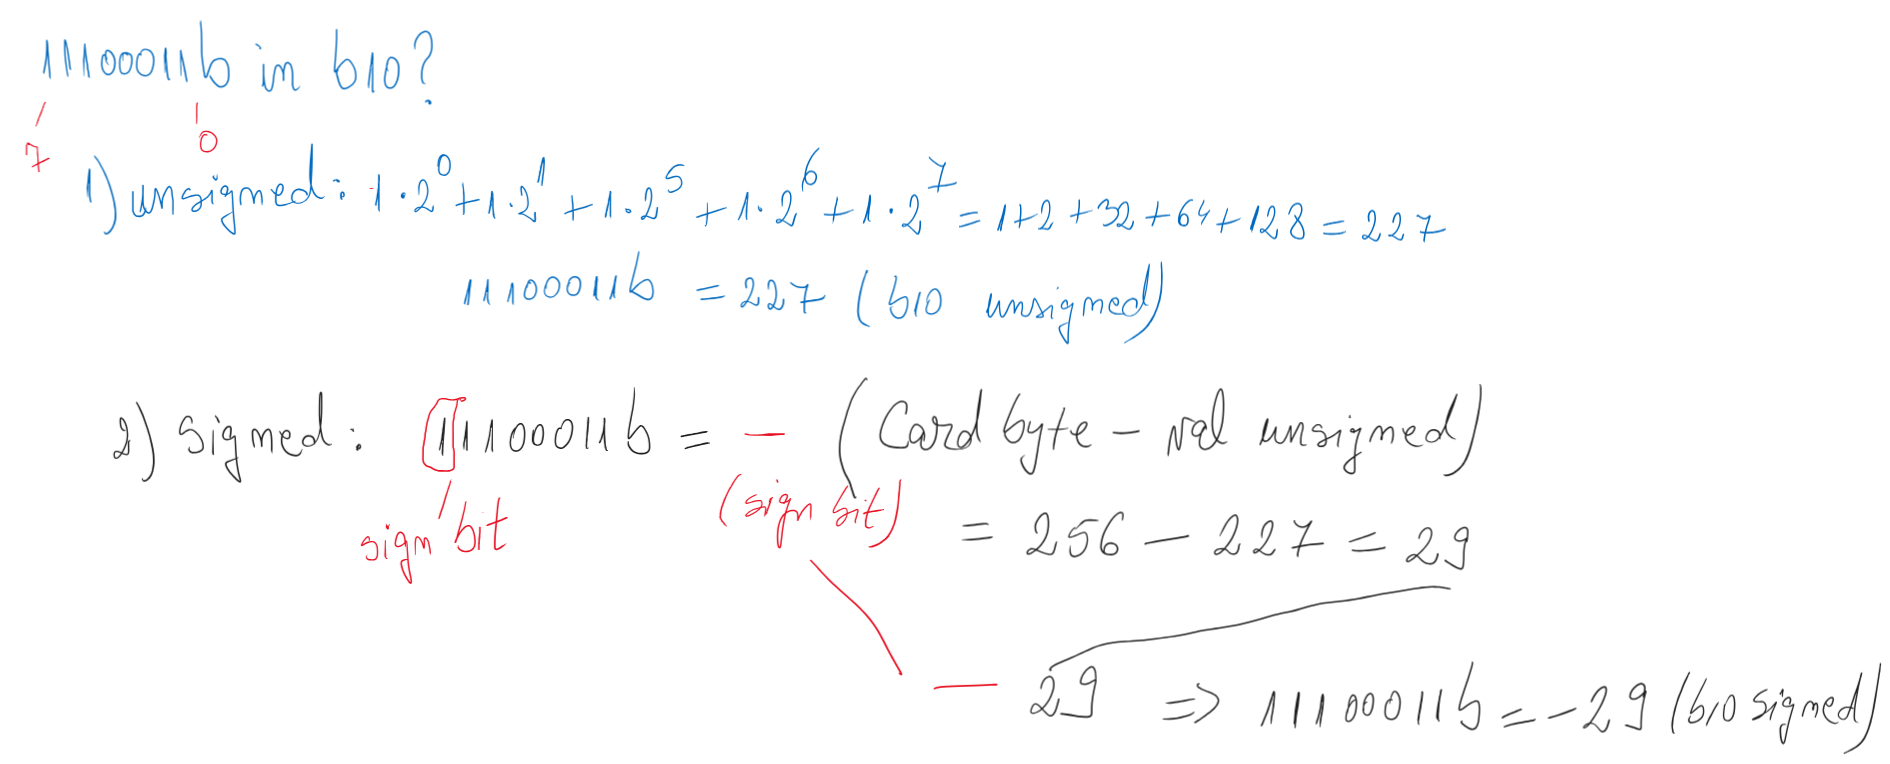 11100011b in b10?
7 0
1) unsigned: 1·2⁰+1·2¹+1·2⁵+1·2⁶+1·2⁷=1+2+32+64+128=227
11100011b = 227 (b10 unsigned)
2) signed: 11100011b = - (Card byte - val unsigned)
sign bit (sign bit) = 256 - 227 = 29
- 29 => 11100011b = -29 (b10 signed)